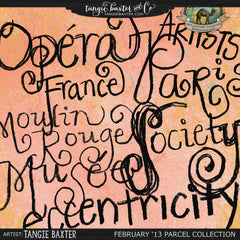 tangie baxter and Co.
TANGIEBAXTER.COM
Opéra
Artists
France
Paris
Moulin
Rouge
Society
Musée
Eccentricity
ARTIST: TANGIE BAXTER
FEBRUARY '13 PARCEL COLLECTION